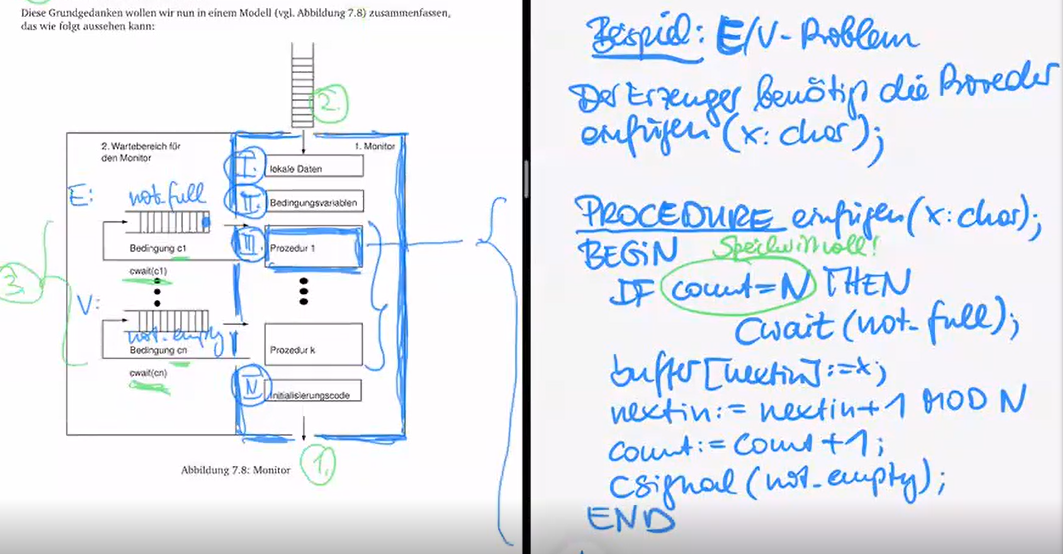 Diese Grundgedanken wollen wir nun in einem Modell (vgl. Abbildung 7.8) zusammenfassen,
das wie folgt aussehen kann:
2.
2. Wartebereich für
den Monitor
1. Monitor
I.
lokale Daten
E: not_full
II.
Bedingungsvariablen
III.
Prozedur 1
Bedingung c1
3.
cwait(c1)
V:
not_empty
Bedingung cn
Prozedur k
cwait(cn)
IV
Initialisierungscode
1.
Abbildung 7.8: Monitor
Beispiel: E/V-Problem
Der Erzeuger benötigt die Prozedur
einfügen (x: char);
PROCEDURE einfügen (x: char);
BEGIN
IF count=N THEN
cwait (not_full);
buffer [nextin] := x;
nextin := nextin + 1 MOD N
count := count + 1;
csignal (not_empty);
END